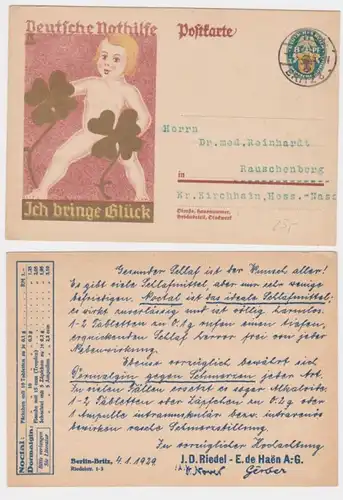 Deutsche Nothilfe
Postkarte
Ich bringe Glück
Herrn
Dr.med.Reinhardt
in Rauschenberg
Kr.Kirchhain,Hess.-Nass
Straße, Hausnummer,
Gebäudeteil, Stockwerk
Gesunder Schlaf ist der Wunsch aller!
Es gibt viele Schlafmittel, aber nur sehr wenige
befriedigen. Noctal ist das ideale Schlafmittel,
es wirkt zuverlässig und ist völlig harmlos.
1-2 Tabletten zu 0.1g rufen einen tiefen,
erquickenden Schlaf hervor frei von jeder
Nebenwirkung.
Ebenso vorzüglich bewährt sich
Dormalgin gegen Schmerzen jeder Art.
In vielen Fällen ersetzt es sogar Alkaloide.
1-2 Tabletten oder Zäpfchen zu 0.2g oder
1 Ampulle intramuskulär bezw. intravenös
bewirken rasch Schmerzstillung.
In vorzüglicher Hochachtung
Berlin-Britz, 4.1.1929
Riedelstr. 1-3
J.D. Riedel - E. de Haën A.G.
Gerber
Noctal:
Dormalgin: